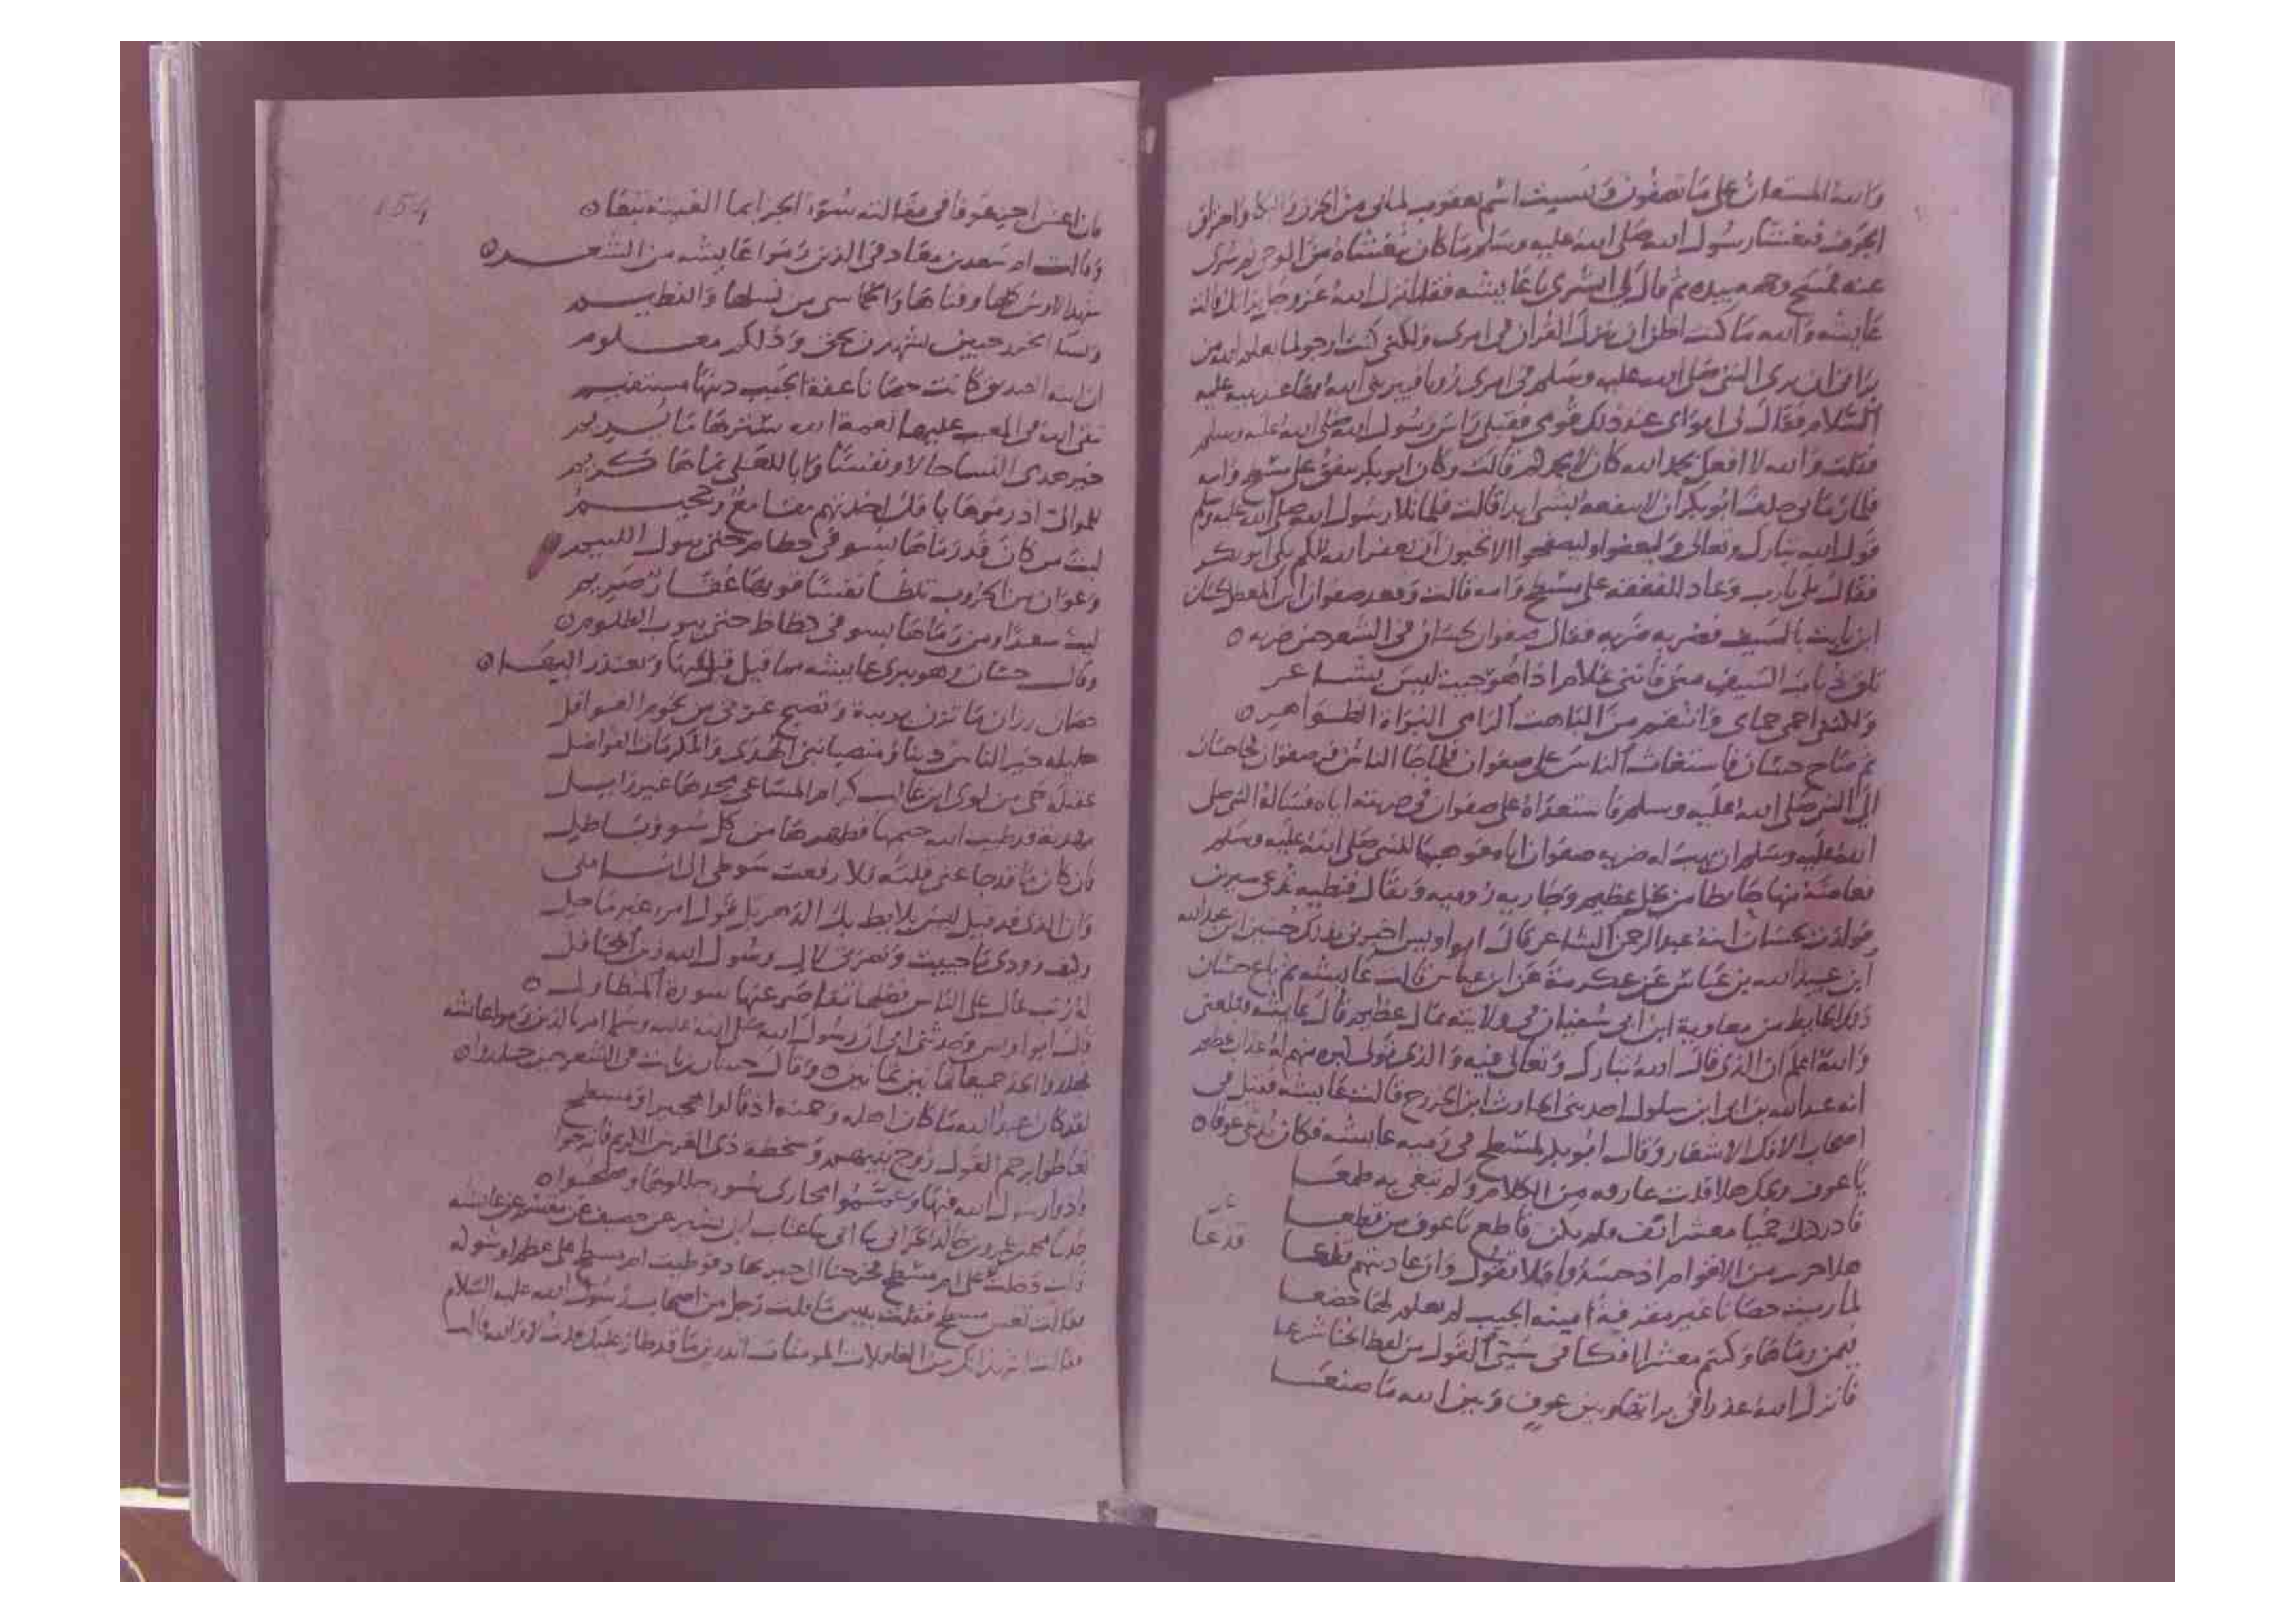 والله المستعان على ما تصفون ونسيت اسم يعقوب لما بي من الحزن والبكا واحراق
الجوف فتغشا رسول الله صلى الله عليه وسلم ما كان يتغشاه من الوحي ثم سرى
عنه فمسح وجهه بيده ثم قال لي ابشري يا عايشه فقد انزل الله عز وجل براتك قالت
عايشه والله ما كنت اظن ان ينزل القران في امرى ولكني كنت ارجو لما يعلم الله من
براتي ان يرى النبي صلى الله عليه وسلم في امرى رويا فيبريني الله بها عند نبيه عليه
السلام فقال لي ابواى عند ذلك قومي فقبلي راس رسول الله صلى الله عليه وسلم
فقلت والله لا افعل بحمد الله كان لا بحمدكم قالت وكان ابو بكر ينفق على مسطح وامه
فلما رماني حلف ابو بكر ان لا ينفعه بشي ابدا قالت فلما تلا رسول الله صلى الله عليه وسلم
قول الله تبارك وتعالى وليعفوا وليصفحوا الا تحبون ان يغفر الله لكم بكى ابو بكر
فقال بلى يا رب وعاد النفقه على مسطح وامه قالت وقعد صفوان ابن المعطل لحسان
ابن ثابت بالسيف فضربه ضربه فقال صفوان لحسان في الشعر حين ضربه
تلق ذباب السيف مني فانني غلام اذا هوجيت ليس بشاعر
ولكنني احمي حماى وانتقم من الباهت الرامي البراة الظواهر
ثم صاح حسان فاستغاث الناس على صفوان فلما جا الناس فر صفوان فجا حسان
الى النبي صلى الله عليه وسلم فاستعداه على صفوان في ضربته اياه فساله النبي صلى
الله عليه وسلم ان يهب له ضربه صفوان اياه فوهبها للنبي صلى الله عليه وسلم
فعاضه منها حايطا من نخل عظيم وجاريه روميه ويقال قبطيه تدعى سيرين
فولدت لحسان ابنه عبد الرحمن الشاعر قال ابو اويس اخبرني بذلك حسين ابن عبد الله
ابن عبيد الله بن عباس عن عكرمة عن ابن عباس قالت عايشه ثم باع حسان
ذلك الحايط من معاوية ابن ابي سفيان في ولايته بمال عظيم قال عايشه فبلغني
والله اعلم ان الذى قال الله تبارك وتعالى فيه والذى تولى كبره منهم له عذاب عظيم
انه عبد الله بن ابي ابن سلول احد بني الحارث ابن الخزرج قالت عايشه فقيل في
اصحاب الافك الاشعار وقال ابو بكر لمسطح في رميه عايشه فكان يدعى عوفا
يا عوف ويحك هلا قلت عارفه من الكلام ولم تبغي به طمعا
فادركتك حميا معشر انف ولم يكن قاطع يا عوف من قطعا
قذعا
هلا حربت من الاقوام اذ حسدوا فلا تقول وان عاديتهم
لما رميت حصانا غير مقرفة امينه الجيب لم يعلم لها خضعا
فيمن رماها وكنتم معشرا افكا في سيئ القول من لفظ الخنا شرعا
فانزل الله عذرا في براتها وبين عوف وبين الله ما صنعا
154
فان اعش اجز عوفا في مقالته سوء الجزا بما الفيته تبعا
وقالت ام سعد بن معاذ في الذين رموا عايشه من الشعر
شهد الاوس كلها وفتاها والخماسي من نسلها والفطيم
ونسا الخزرجيين يشهدن بحق وذلكم معلوم
ان ابنه الصديق كانت حصانا عفة الجيب دينها مستقيم
تتقي الله في المغيب عليها نعمة الله سترها ما يريم
خير هدى النسا حالا ونفسا وابا للعلى نماها كريم
للموالي اذ رموها بافك اخذتهم مقامع وجحيم
ليت من كان قد رماها بسو في حطام حتى يبول اللييم
وعوان من الحروب تلظا نفسا فوقها عقار صريم
ليت سعدا ومن رماها بسو في كظاظ حتى يتوب الظلوم
وقال حسان وهو يبرى عايشه مما قيل فيها ويعتذر اليها
حصان رزان ما تزن بريبة وتصبح غرثى من لحوم الغوافل
حليلة خير الناس دينا ومنصبا نبي الهدى والمكرمات الفواضل
عقيلة حي من لوى ابن غالب كرام المساعي مجدها غير زايل
مهذبة قد طيب الله خيمها فطهرها من كل سوء وباطل
فان كان ما قد جا عني قلته فلا رفعت سوطي الي اناملي
وان الذى قد قيل ليس بلايط بك الدهر بل قول امرء غير ماحل
وكيف وودى ما حييت ونصرتي لال رسول الله زين المحافل
له رتب عال على الناس فضلها تقاصر عنها سورة المتطاول
قال ابو اويس وحدثني ابي ان رسول الله صلى الله عليه وسلم امر بالذين رموا عايشه
فجلدوا الحد جميعا ثمانين ثمانين وقال حسان بن ثابت في الشعر حين جلدوا
لقد كان عبد الله ما كان اهله وحمنه اذ قالوا هجيرا ومسطح
تعاطوا برجم القول زوج نبيهم وسخطه ذى العرش الكريم فانزحوا
واذوا رسول الله فيها وعمموا مخازى سوء جللوها وفضحوا
حدثنا محمد بن عمرو بن خالد الحراني ثنا ابي ثنا عتاب ابن بشير عن خصيف عن مقسم عن عايشه
قالت دخلت على ام مسطح فخرجنا الى حير عاد فوطيت ام مسطح على عظم او شوكه
فقالت تعس مسطح فقلت بيس ما قلت رجل من اصحاب رسول الله عليه السلام
فقالت اشهد انك من الغافلات المومنات اتدرين ما قد طار عليك قلت لا والله قالت